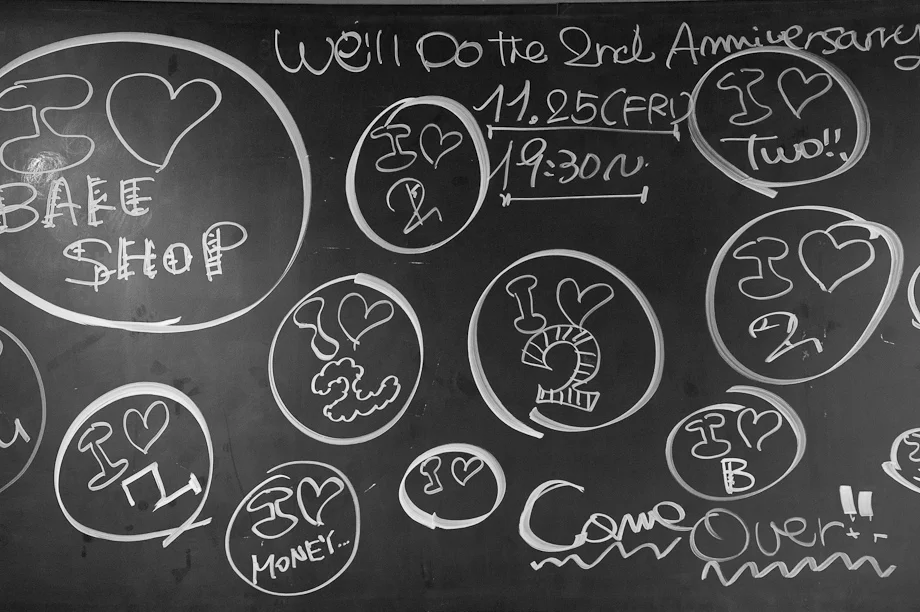 We'll Do the 2nd Anniversary
11.25(FRI)
19:30~
I ♡
BAKE
SHOP
I ♡
2
I ♡
Two!!
I ♡
2
I ♡
2
I ♡
2
I ♡
I ♡
MONEY...
I ♡
I ♡
B
Come Over!!